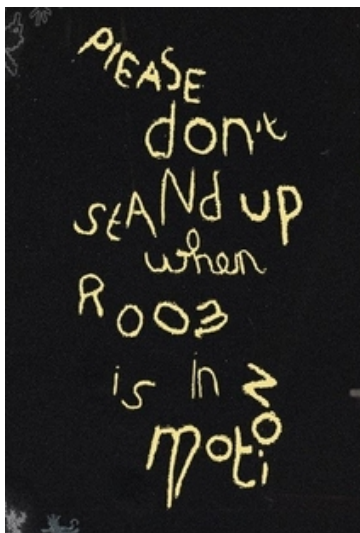 PLEASE
don't
stANd up
when
ROOM
is in
motioN